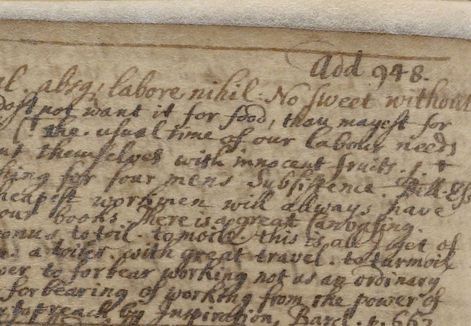 Add 948.
absq; labore nihil. No sweet without
not want it for food, thou mayest for
the usual time of our labour needs
themselves with innocent fruits.
thing for four mens subsistence
cheapest workmen will allways have
our books, here is a great canvasing.
to toil. to moile. this is all I get of
a toiler. with great travel. to turmoil
to forbear working not as an ordinary
forbearing of working from the power of
to preach by Inspiration, Barcl. p. 663